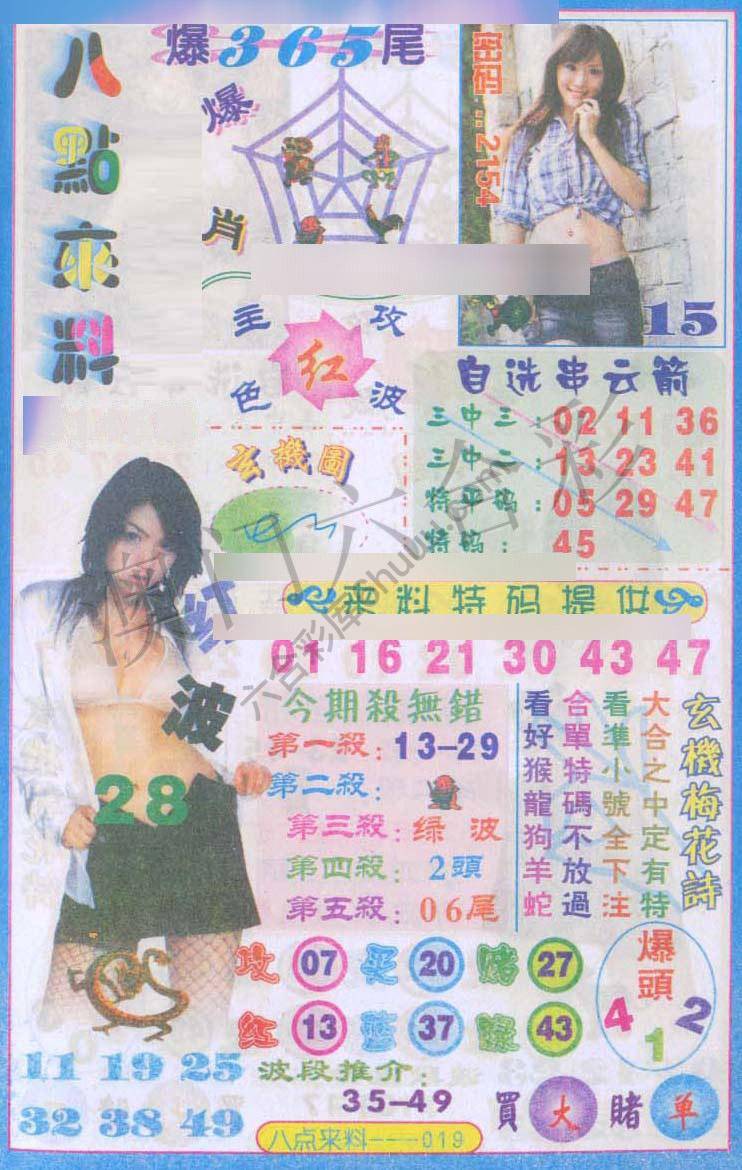 爆365尾
八點來料
爆肖
密码...2154
15
主攻
红
色波
自选串云箭
三中三:02 11 36
三中二:13 23 41
特平码:05 29 47
特码:45
玄機圖
澳门六合彩
六合彩库6hulu.com
红波
28
来料特码提供
01 16 21 30 43 47
今期殺無錯
第一殺:13-29
第二殺:
第三殺:绿波
第四殺:2頭
第五殺:06尾
玄機梅花詩
大合之中定有特
看準小號全下注
合單特碼不放過
看好猴龍狗羊蛇
攻 07 买 20 赌 27
红 13 蓝 37 绿 43
爆頭
4 1 2
11 19 25
32 38 49
波段推介:
35-49
買大賭单
八点来料---019